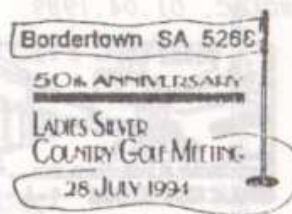 Bordertown SA 5268
50th ANNIVERSARY
LADIES SILVER
COUNTRY GOLF MEETING
28 JULY 1994